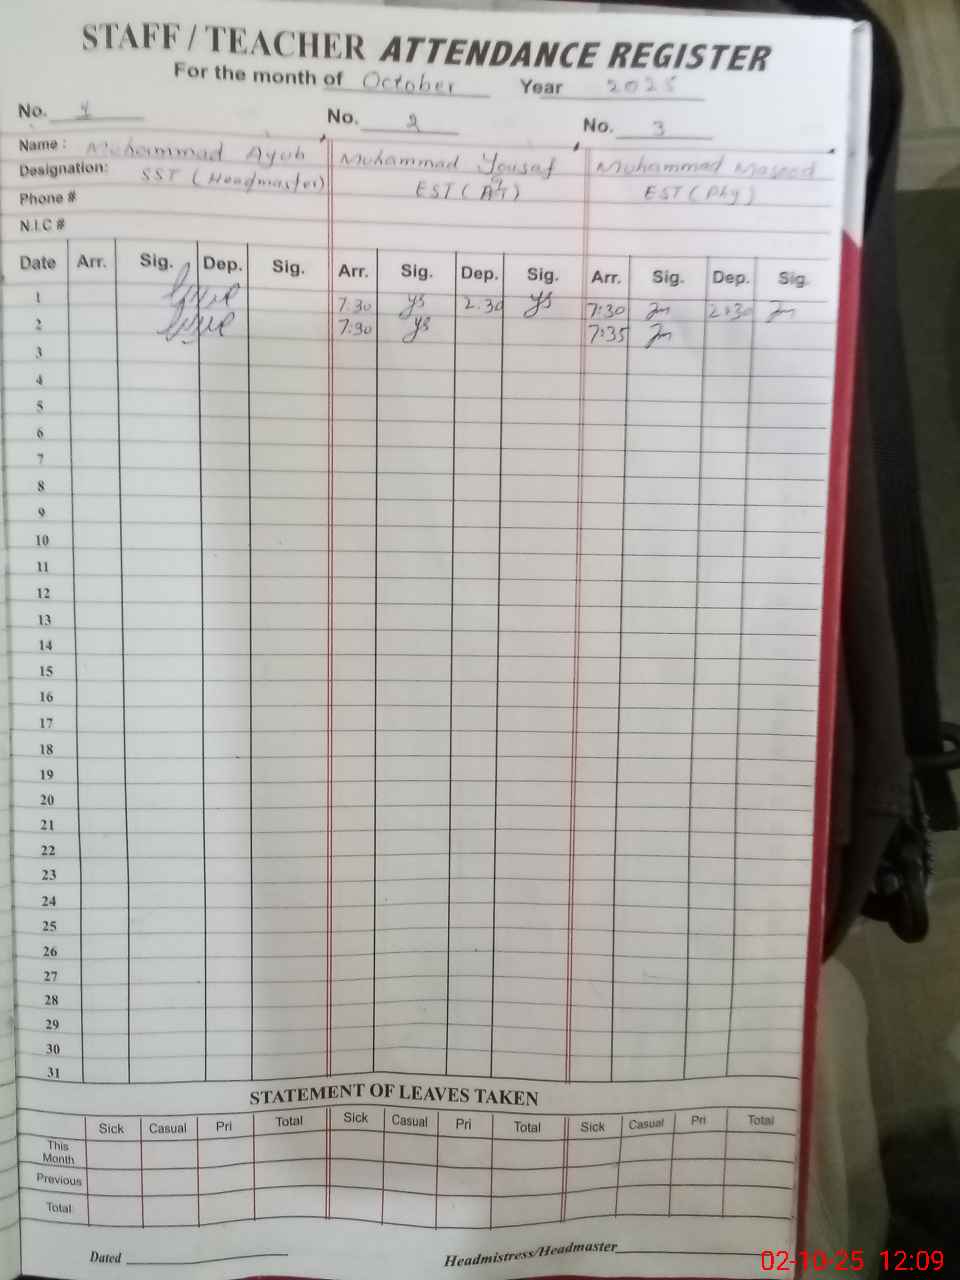 STAFF / TEACHER ATTENDANCE REGISTER
For the month of October Year 2025
No. 1 No. 2 No. 3
Name : Muhammad Ayub Muhammad Yousaf Muhammad Masood
Designation: SST (Headmaster) EST (AT) EST (Phy)
Phone #
N.I.C #
Date Arr. Sig. Dep. Sig. Arr. Sig. Dep. Sig. Arr. Sig. Dep. Sig.
1 leave 7:30 ys 2:30 ys 7:30 2:30
2 leave 7:30 ys 7:35
3
4
5
6
7
8
9
10
11
12
13
14
15
16
17
18
19
20
21
22
23
24
25
26
27
28
29
30
31
STATEMENT OF LEAVES TAKEN
Sick Casual Pri Total Sick Casual Pri Total Sick Casual Pri Total
This
Month
Previous
Total
Dated Headmistress/Headmaster
02-10-25 12:09